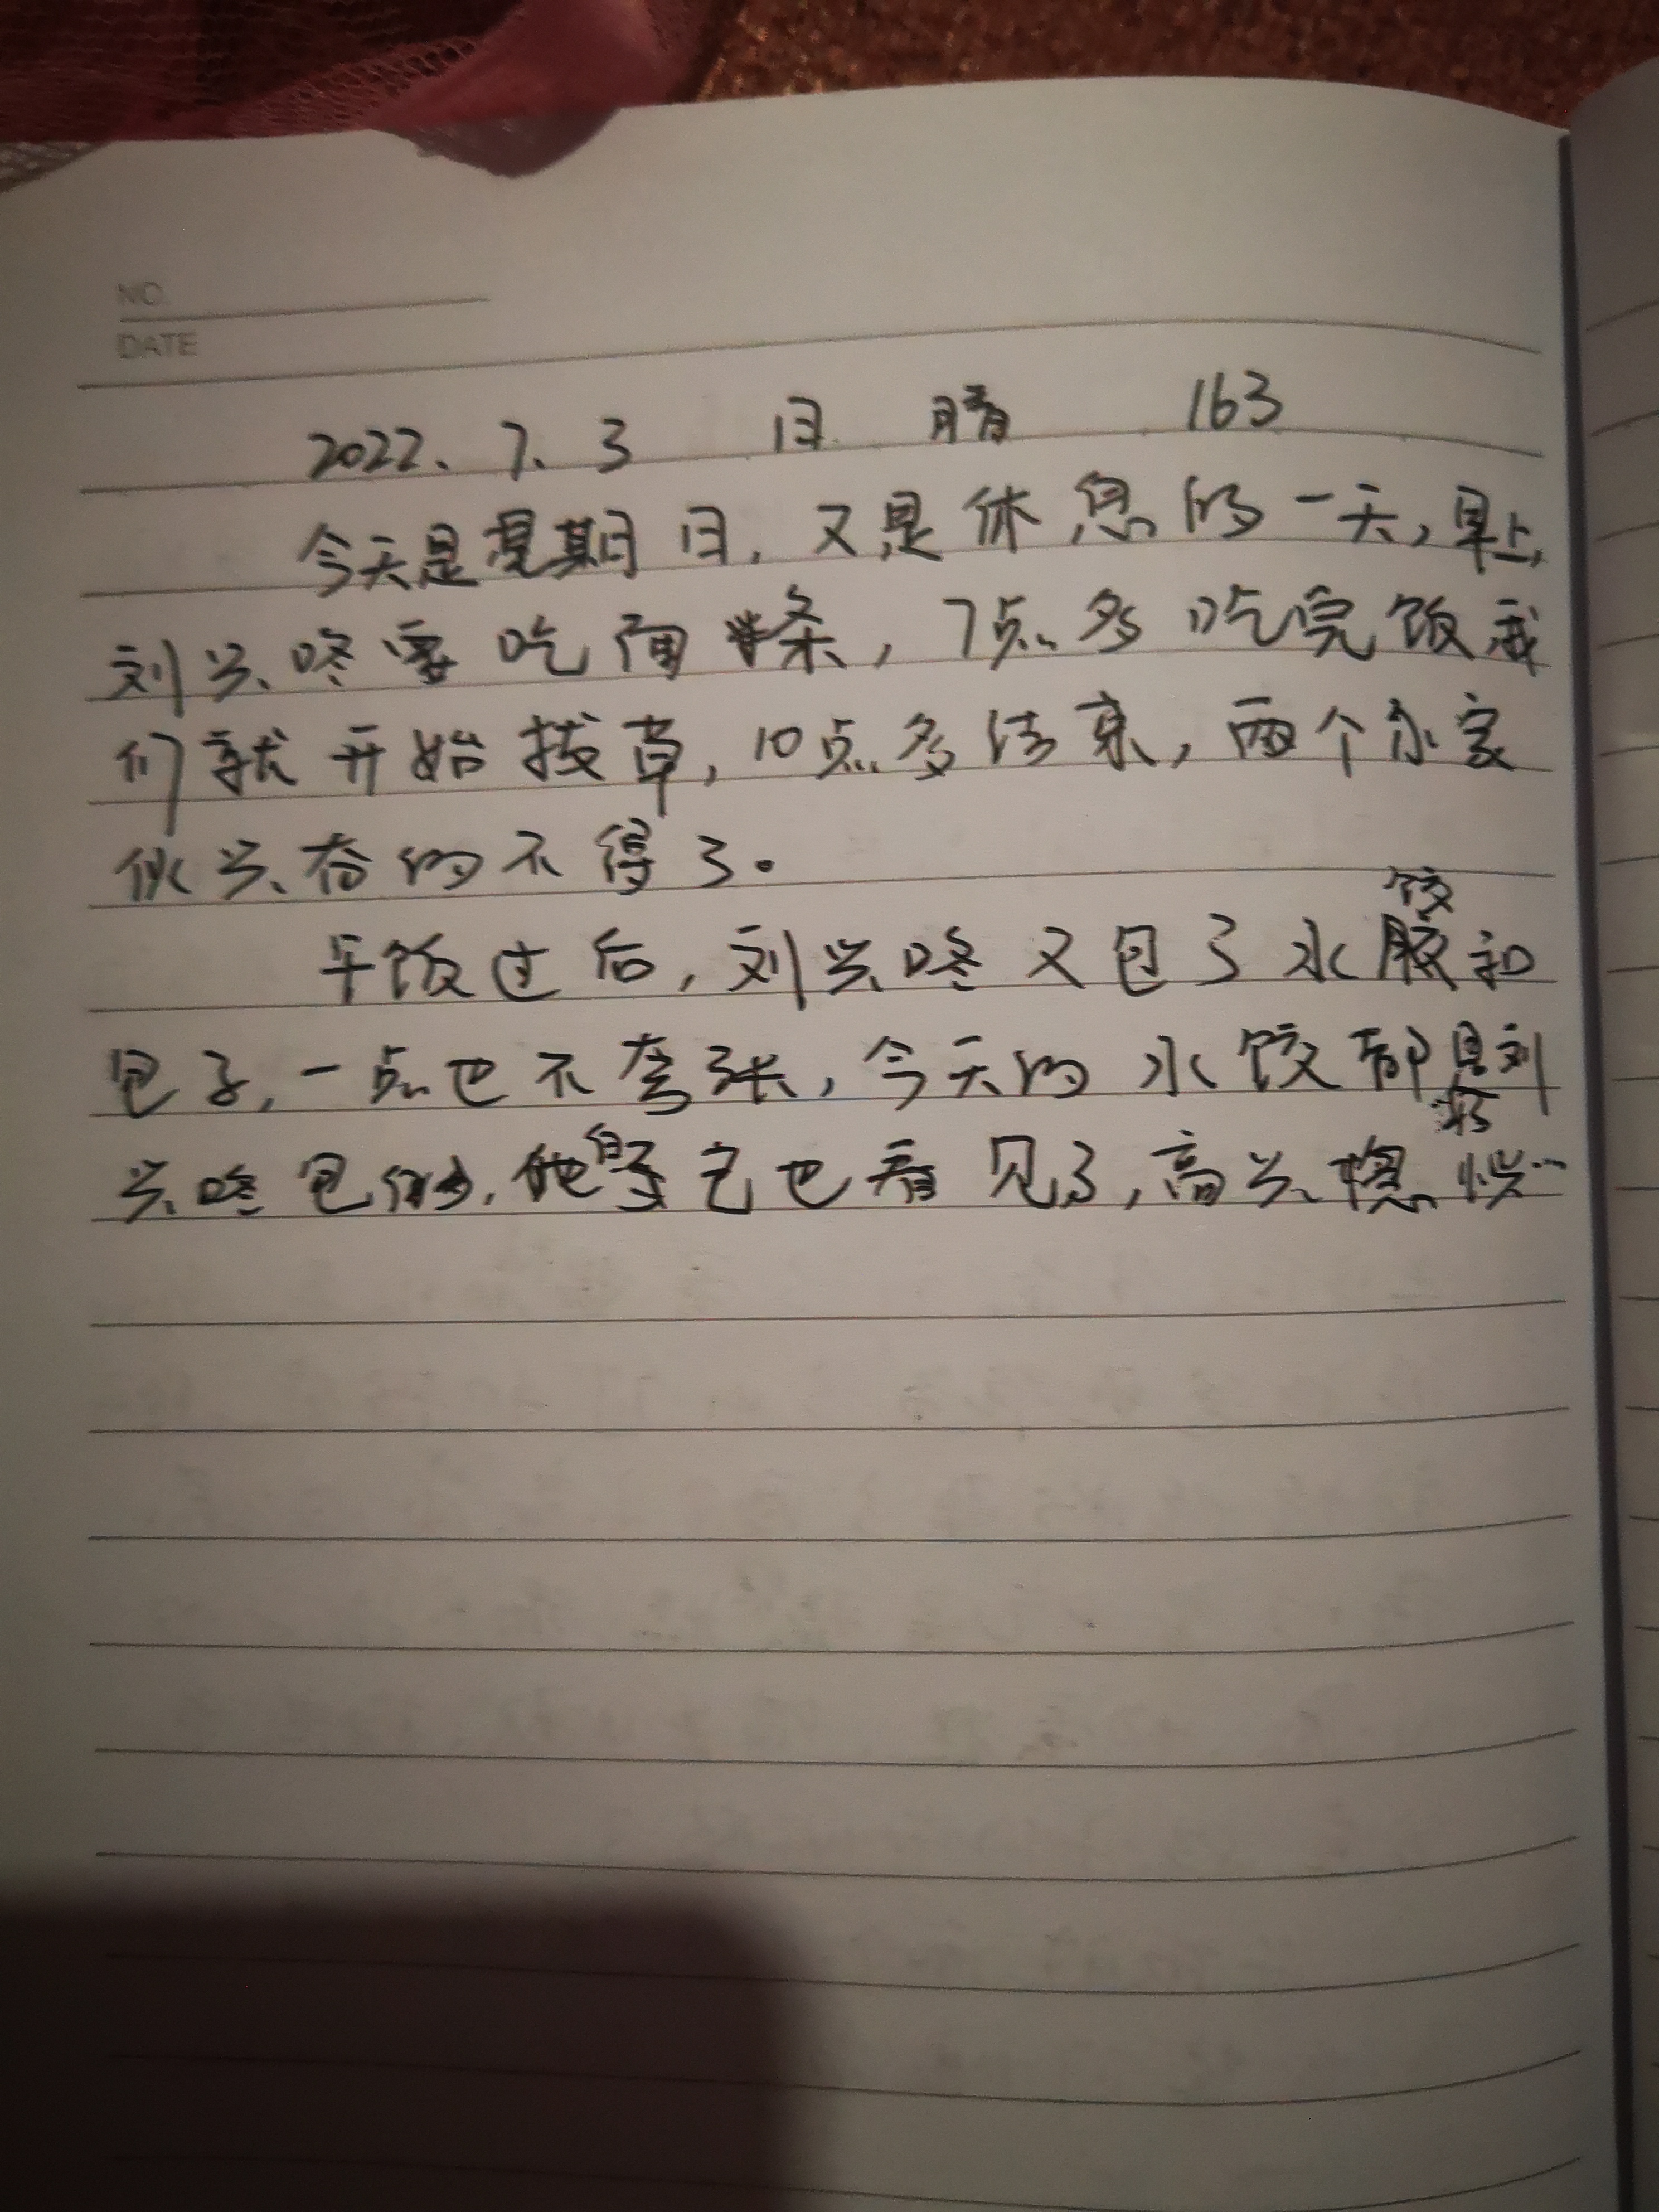 NO.
DATE
2022、7、3 日 晴 163
今天是星期日，又是休息的一天，早上，
刘兴咚要吃面条，7点多吃完饭我
们就开始拔草，10点多结束，两个小家
伙兴奋的不得了。
饺
午饭过后，刘兴咚又包了水胶和
包子，一点也不夸张，今天的水饺都是刘
兴咚包的，他自己也看见了，高兴